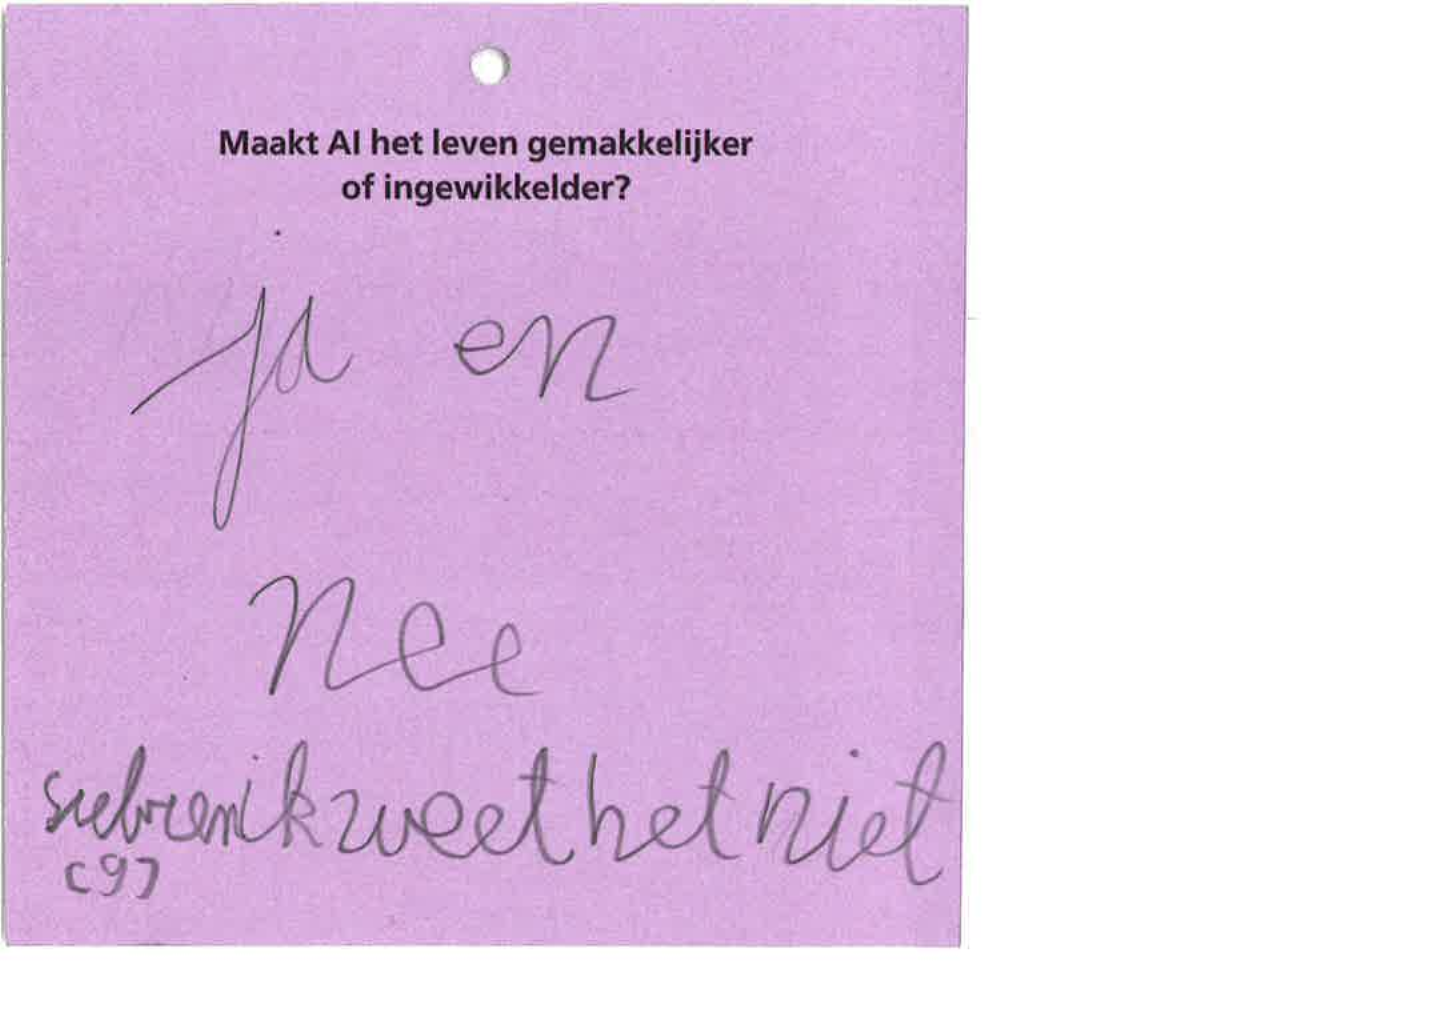 Maakt AI het leven gemakkelijker
of ingewikkelder?
ja en
nee
siebren ik weet het niet
(9)